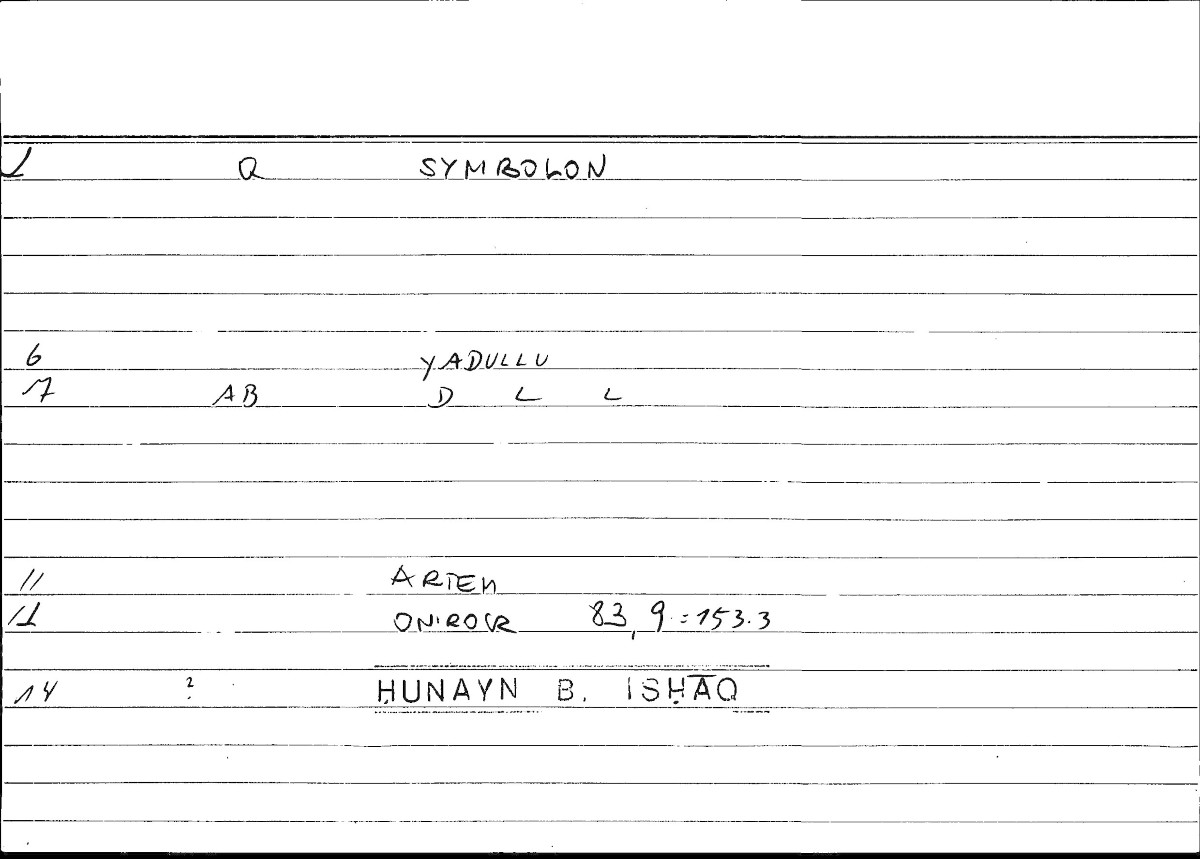 1 Q SYMBOLON
6 YADULLU
7 AB D L L
11 ARTEM
12 ONIROCR 83,9 = 153.3
14 ? ḤUNAYN B. ISḤĀQ